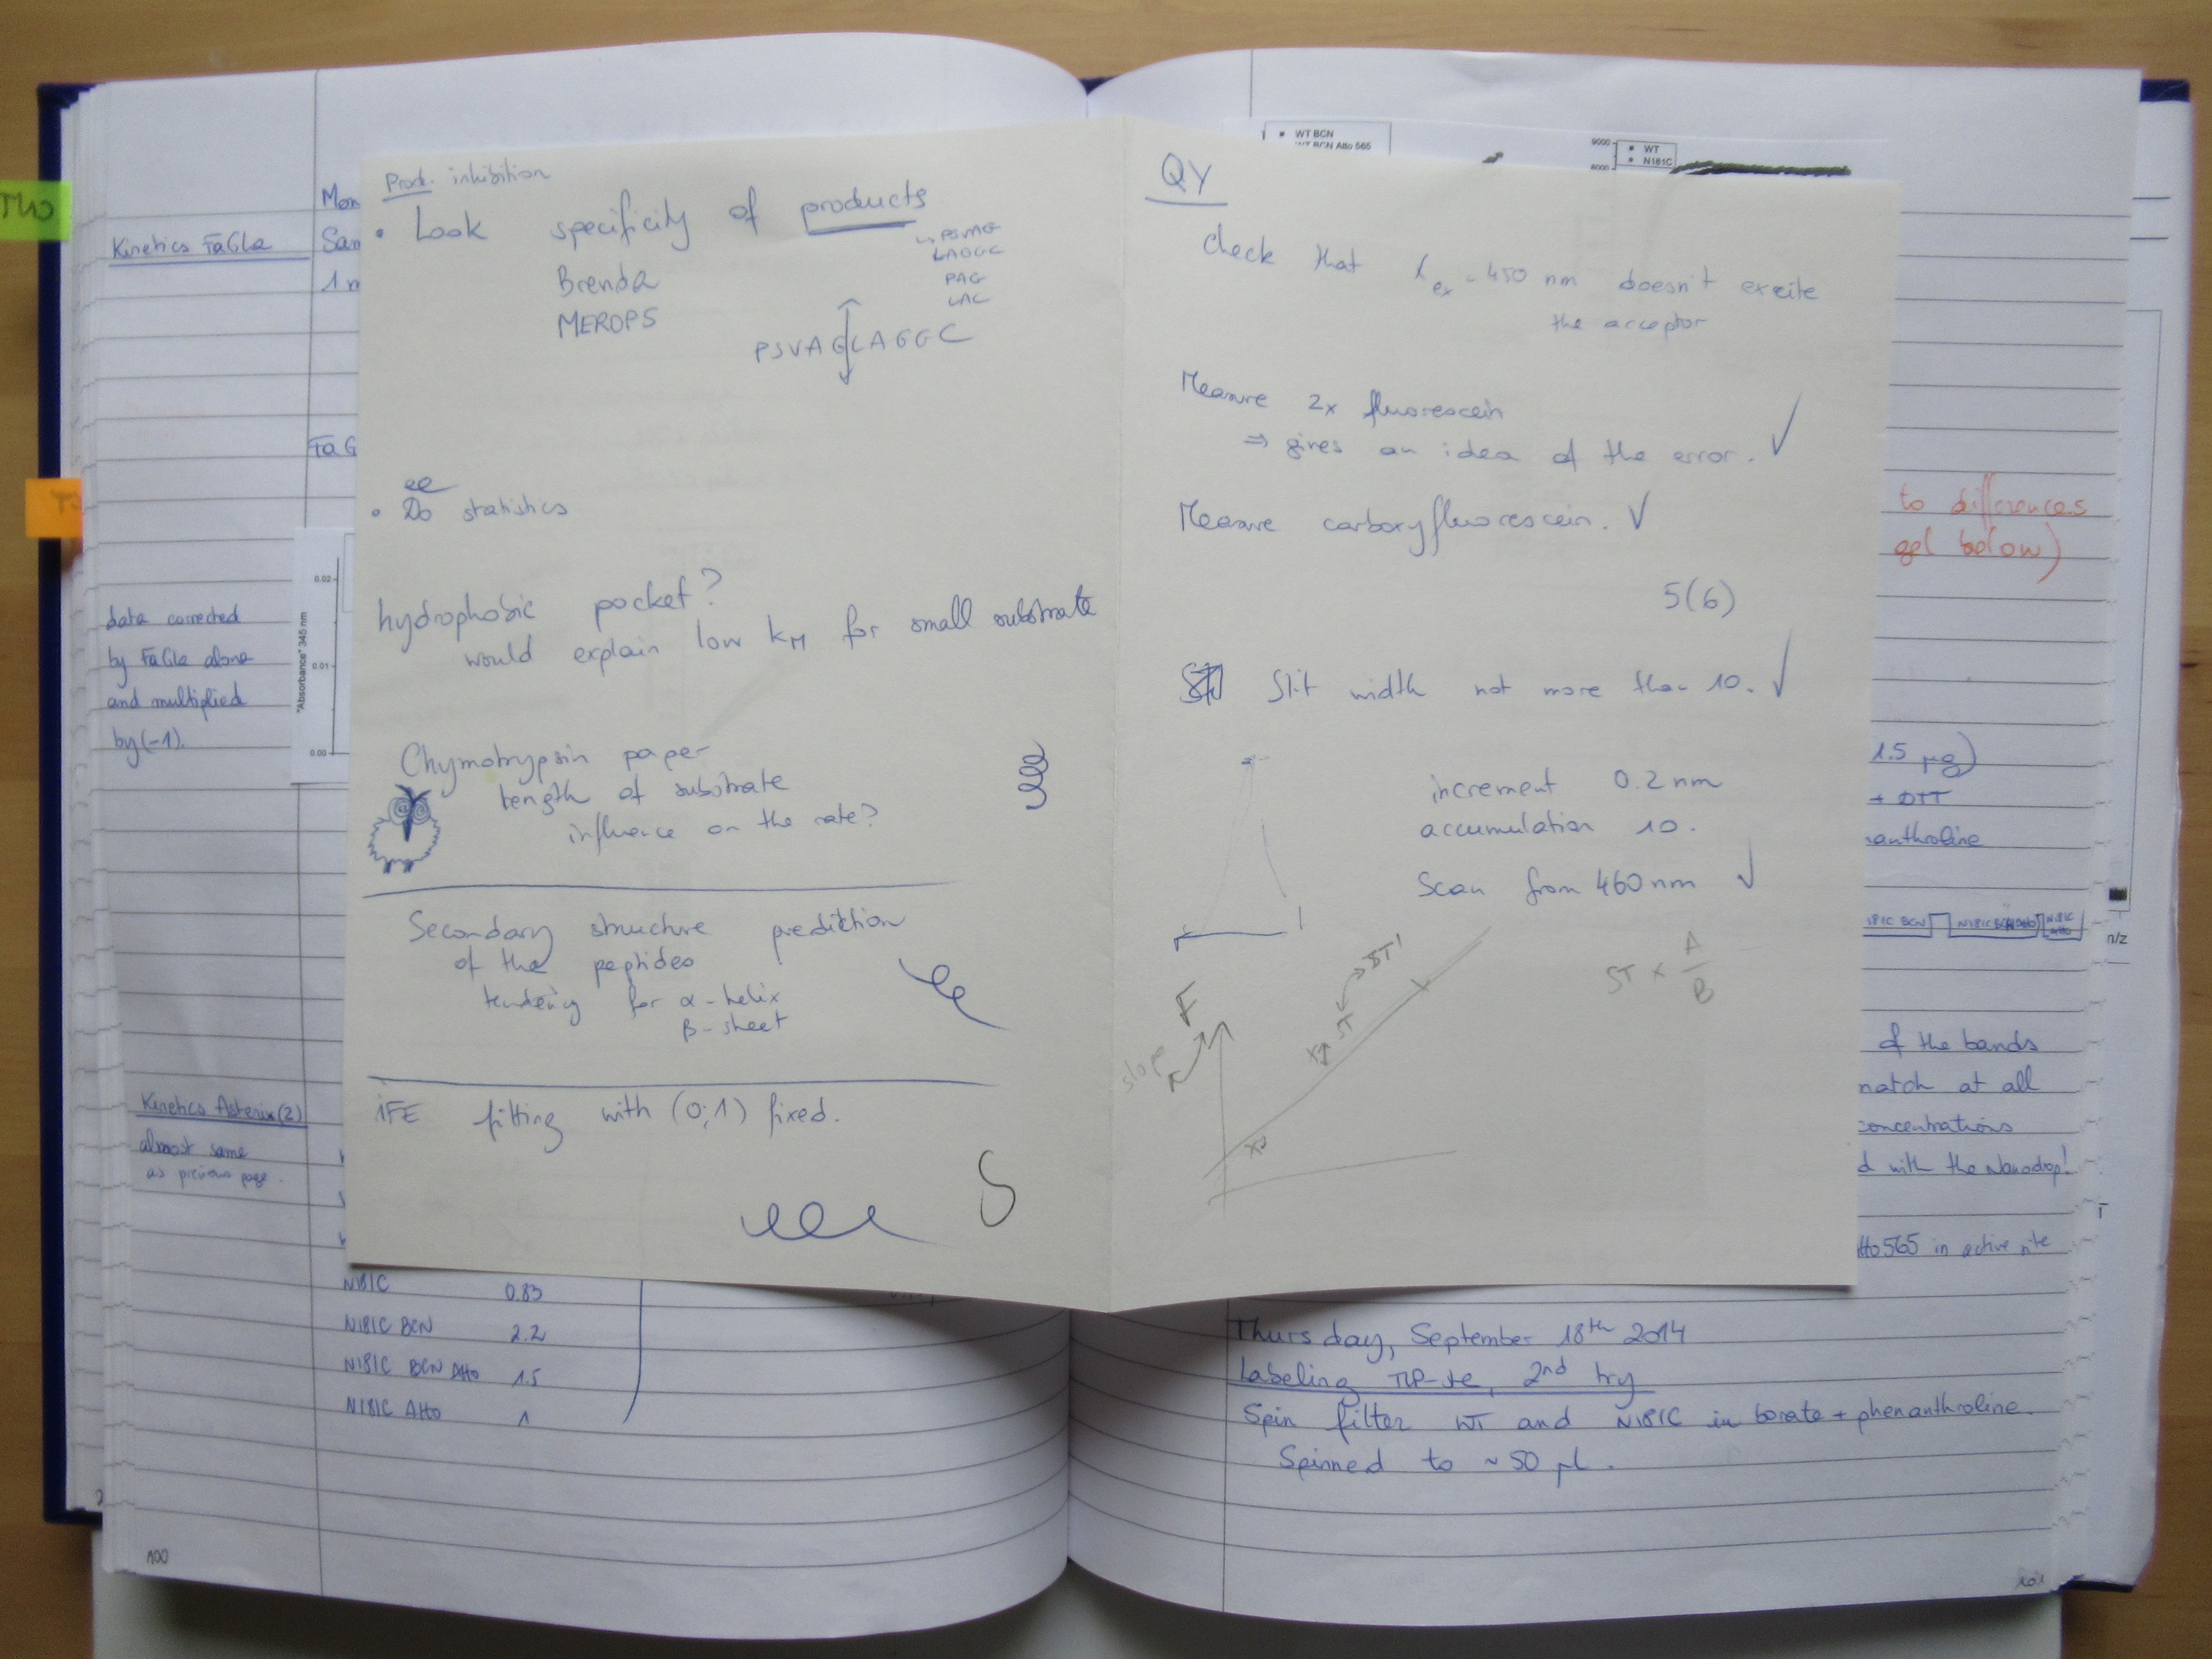 TLP
Kinetics FaGLa
Mon
San
1 m
FaG
data corrected
by FaGLa alone
and multiplied
by (-1).
"Absorbance" 345 nm
0.02
0.01
0.00
Kinetics Asterix (2)
almost same
as previous page.
N181C 0.83
N181C BCN 2.2
N181C BCN Atto 1.5
N181C Atto 1
100
Prod. inhibition
• Look specificity of products
PSVAG
LAGGC
PAG
LAC
Brenda
MEROPS
PSVAGLAGGC
• Do statistics
hydrophobic pocket?
would explain low kM for small substrate
Chymotrypsin paper
length of substrate
influence on the rate?
Secondary structure prediction
of the peptides
tendency for α-helix
β-sheet
iFE fitting with (0;1) fixed.
QY
Check that λex = 450 nm doesn't excite
the acceptor
Measure 2x fluorescein
⇒ gives an idea of the error. ✓
Measure carboxyfluorescein. ✓
5(6)
Slit width not more than 10. ✓
increment 0.2 nm
accumulation 10.
Scan from 460 nm ✓
F
slope
ST
ST'
ST x A/B
WT BCN
WT BCN Atto 565
9000
8000
WT
N181C
to differences
gel below)
1.5 µg)
+ DTT
nanthroline
181C BCN
N181C BCN Atto
N181C Atto
n/z
of the bands
match at all
concentrations
d with the Nanodrop!
tto565 in active site
Thursday, September 18th 2014
Labeling TLP-ste, 2nd try
Spin filter WT and N181C in borate + phenanthroline.
Spinned to ~ 50 µl.
101